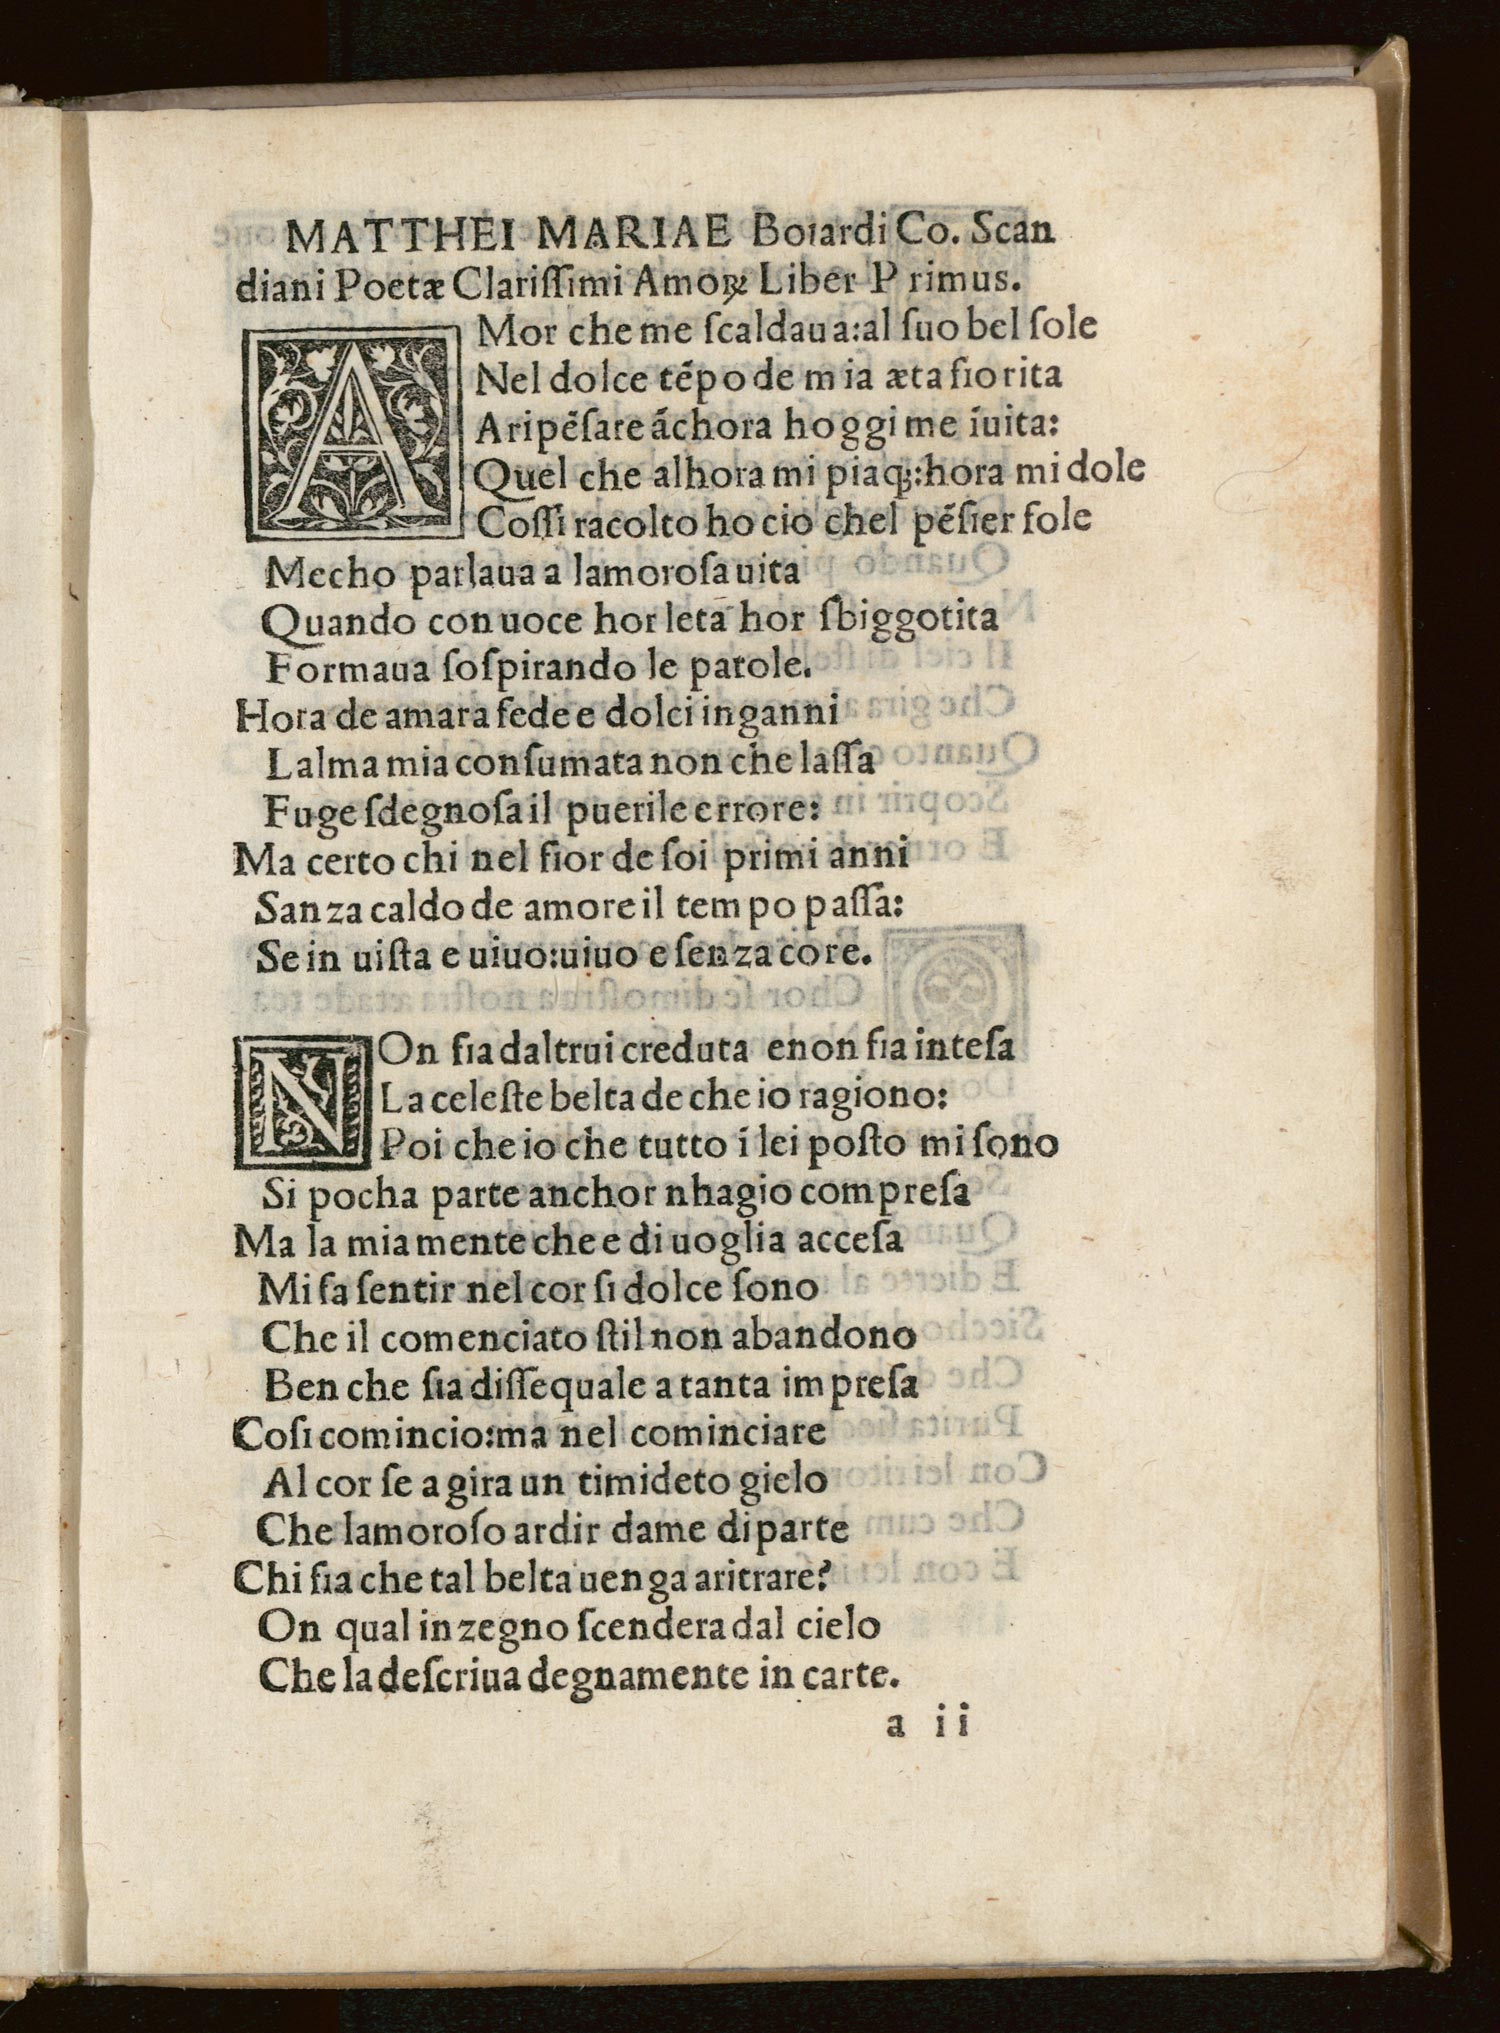 MATTHEI MARIAE Boiardi Co. Scan
diani Poetæ Clariſſimi Amoꝝ Liber Primus.
AMor che me ſcaldaua:al ſuo bel ſole
Nel dolce tēpo de mia æta fiorita
A ripēſare āchora hoggi me īuita:
Quel che alhora mi piaqꝫ:hora mi dole
Coſſi racolto ho cio chel pēſier fole
Mecho parlaua a lamoroſa uita
Quando con uoce hor leta hor ſbiggotita
Formaua ſoſpirando le parole.
Hora de amara fede e dolci inganni
Lalma mia conſumata non che laſſa
Fuge ſdegnoſa il puerile errore:
Ma certo chi nel fior de ſoi primi anni
Sanza caldo de amore il tempo paſſa:
Se in uiſta e uiuo:uiuo e ſenza core.
NOn ſia daltrui creduta e non ſia inteſa
La celeſte belta de che io ragiono:
Poi che io che tutto ī lei poſto mi ſono
Si pocha parte anchor nhagio compreſa
Ma la mia mente che e di uoglia acceſa
Mi fa ſentir nel cor ſi dolce ſono
Che il comenciato ſtil non abandono
Ben che ſia diſſequale a tanta impreſa
Coſi comincio:ma nel cominciare
Al cor ſe agira un timideto gielo
Che lamoroſo ardir dame diparte
Chi ſia che tal belta uenga aritrare?
On qual inzegno ſcendera dal cielo
Che la deſcriua degnamente in carte.
a ii